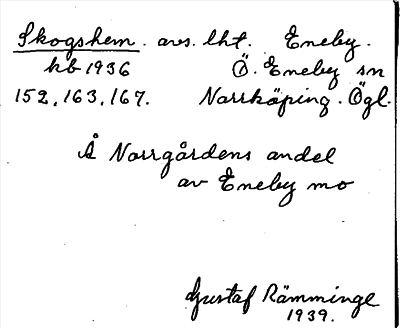 Skogshem. avs. lht. Eneby.
kb 1936 Ö. Eneby sn
152, 163, 167. Norrköping. Ögl.
Å Norrgårdens andel
av Eneby mo
Gustaf Rämminge
1939.